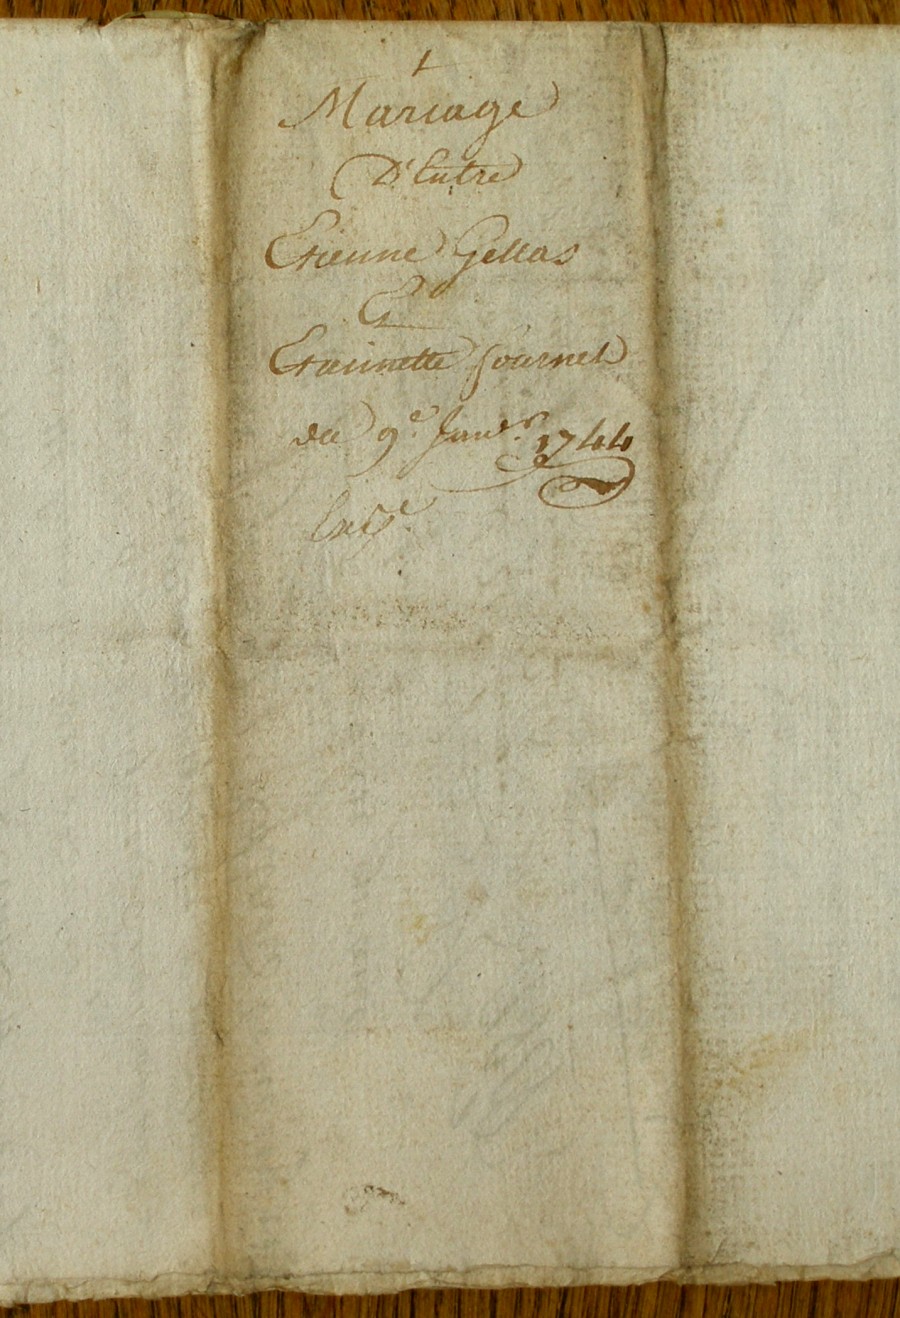 Mariage
D'Entre
Etienne Gellas
Et
Etiennette fournel
du 9e. Janer. 1744